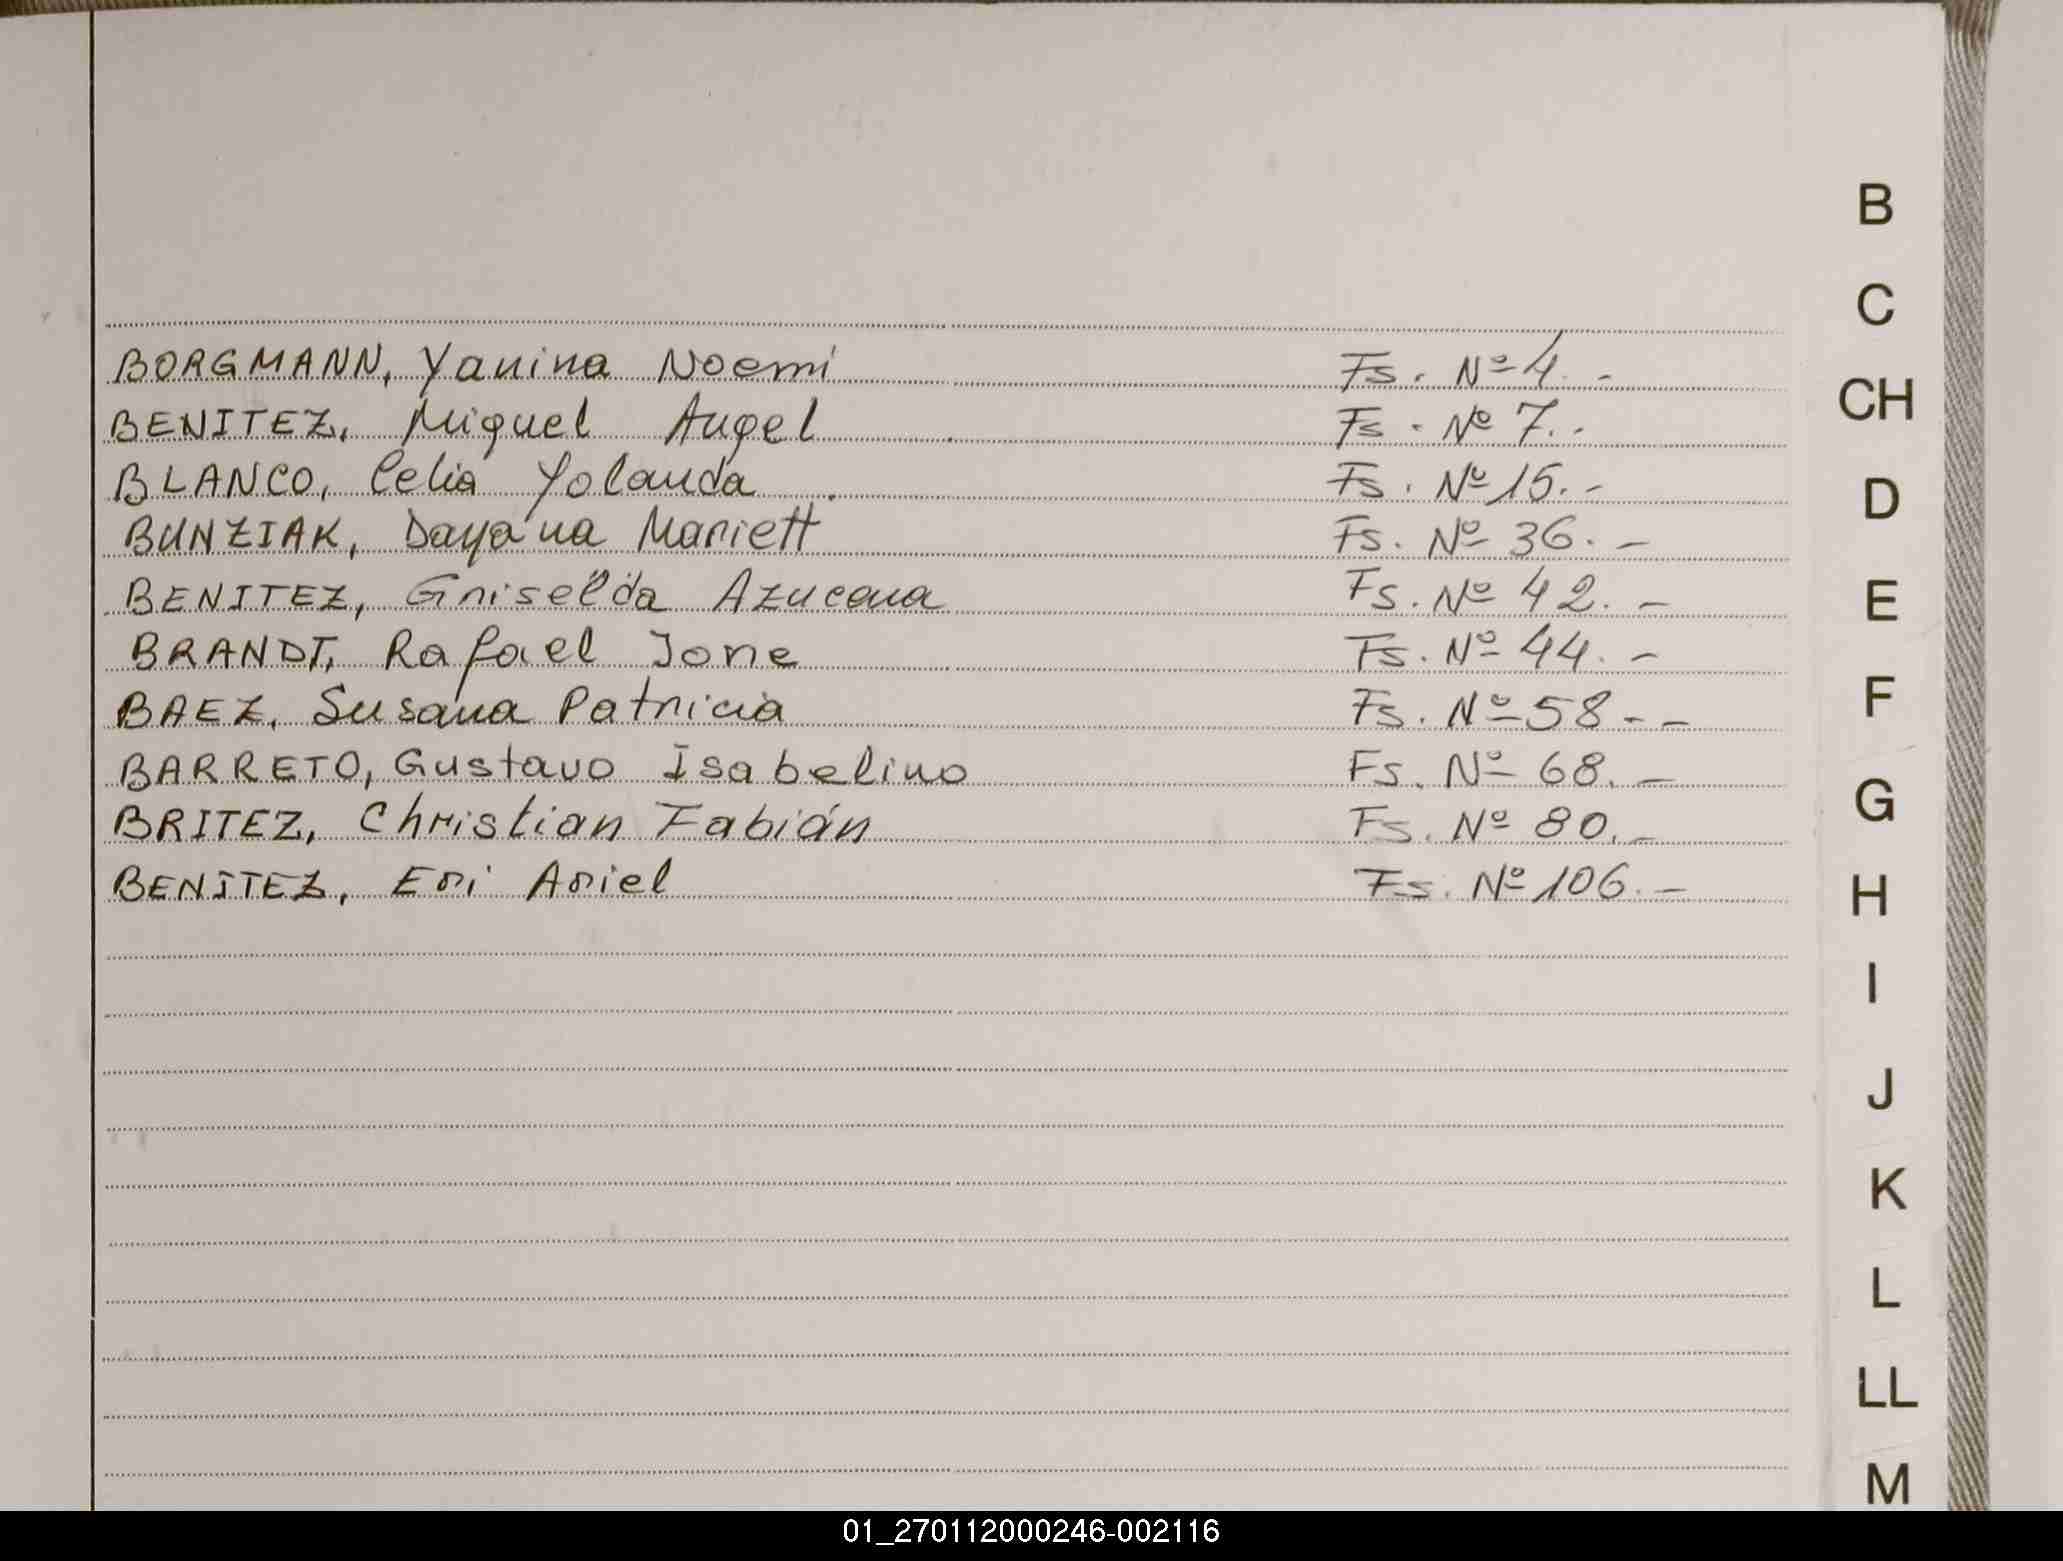 BORGMANN, Yanina Noemi Fs. Nº 4.-
BENITEZ, Miguel Angel Fs. Nº 7.-
BLANCO, Celia Yolanda Fs. Nº 15.-
BUNZIAK, Dayana Mariett Fs. Nº 36.-
BENITEZ, Griselda Azucena Fs. Nº 42.-
BRANDT, Rafael Fs. Nº 44.-
BAEZ, Susana Patricia Fs. Nº 58.--
BARRETO, Gustavo Isabelino Fs. Nº 68.-
BRITEZ, Christian Fabián Fs. Nº 80.-
BENITEZ, Eri Ariel Fs. Nº 106.-
B
C
CH
D
E
F
G
H
I
J
K
L
LL
M
01_270112000246-002116